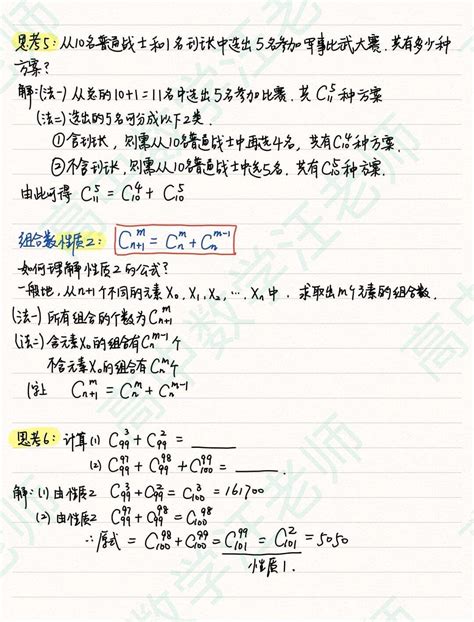 思考5: 从10名普通战士和1名刘讨中选出5名参加军事比武大赛,共有多少种
方案?
解:(法一) 从总的10+1=11名中选出5名参加比赛,共C₁₁⁵种方案
(法二) 选出的5名可分成以下2类.
①含刘讨,则需从10名普通战士中再选4名,共有C₁₀⁴种方案.
②不含刘讨,则需从10名普通战士中选5名,共有C₁₀⁵种方案.
由此可得 C₁₁⁵ = C₁₀⁴ + C₁₀⁵
组合数性质2: Cₙ₊₁ᵐ = Cₙᵐ + Cₙᵐ⁻¹
如何理解性质2的公式?
一般地,从n+1个不同的元素 X₀, X₁, X₂, …, Xₙ 中,求取出m个元素的组合数.
(法一) 所有组合的个数为Cₙ₊₁ᵐ
(法二) 含元素X₀的组合有Cₙᵐ⁻¹个
不含元素X₀的组合有Cₙᵐ个
综上 Cₙ₊₁ᵐ = Cₙᵐ + Cₙᵐ⁻¹
思考6: 计算(1) C₉₉³ + C₉₉² = ____
(2) C₉₉⁹⁷ + C₉₉⁹⁸ + C₁₀₀⁹⁹ = ____.
解:(1) 由性质2 C₉₉³ + C₉₉² = C₁₀₀³ = 161700
(2) 由性质2 C₉₉⁹⁷ + C₉₉⁹⁸ = C₁₀₀⁹⁸
∴原式 = C₁₀₀⁹⁸ + C₁₀₀⁹⁹ = C₁₀₁⁹⁹ = C₁₀₁² = 5050
性质1.
高中数学汪老师